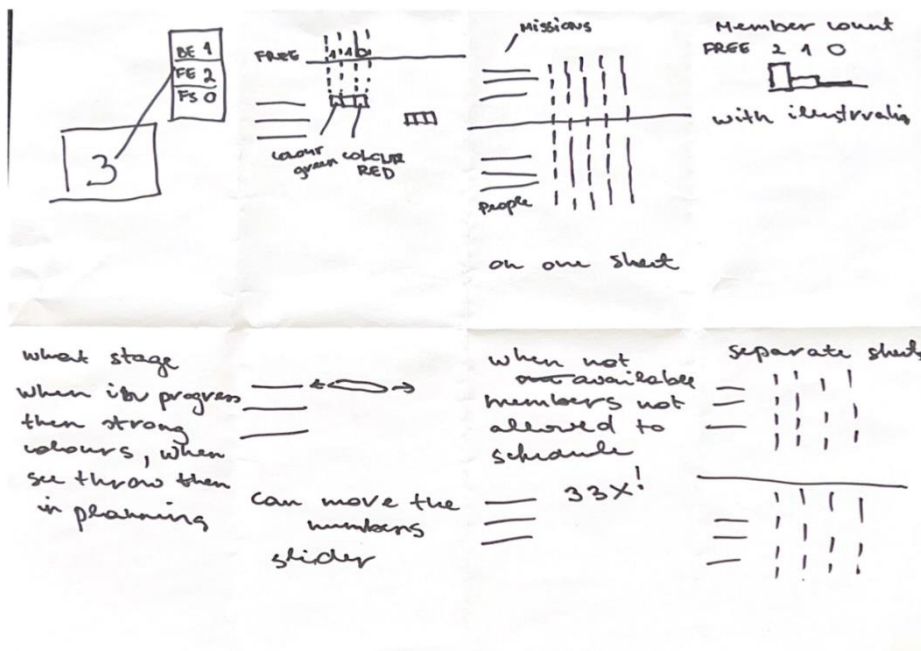 BE 1
FE 2
FS 0
3
FREE 1 1 0 1
colour
green
COLOUR
RED
MISSIONS
people
on one sheet
Member count
FREE 2 1 0
with illustration
what stage
when in progress
then strong
colours, when
see throw then
in planning
can move the
numbers
slider
when not
available
members not
allowed to
schedule
33X!
separate sheets